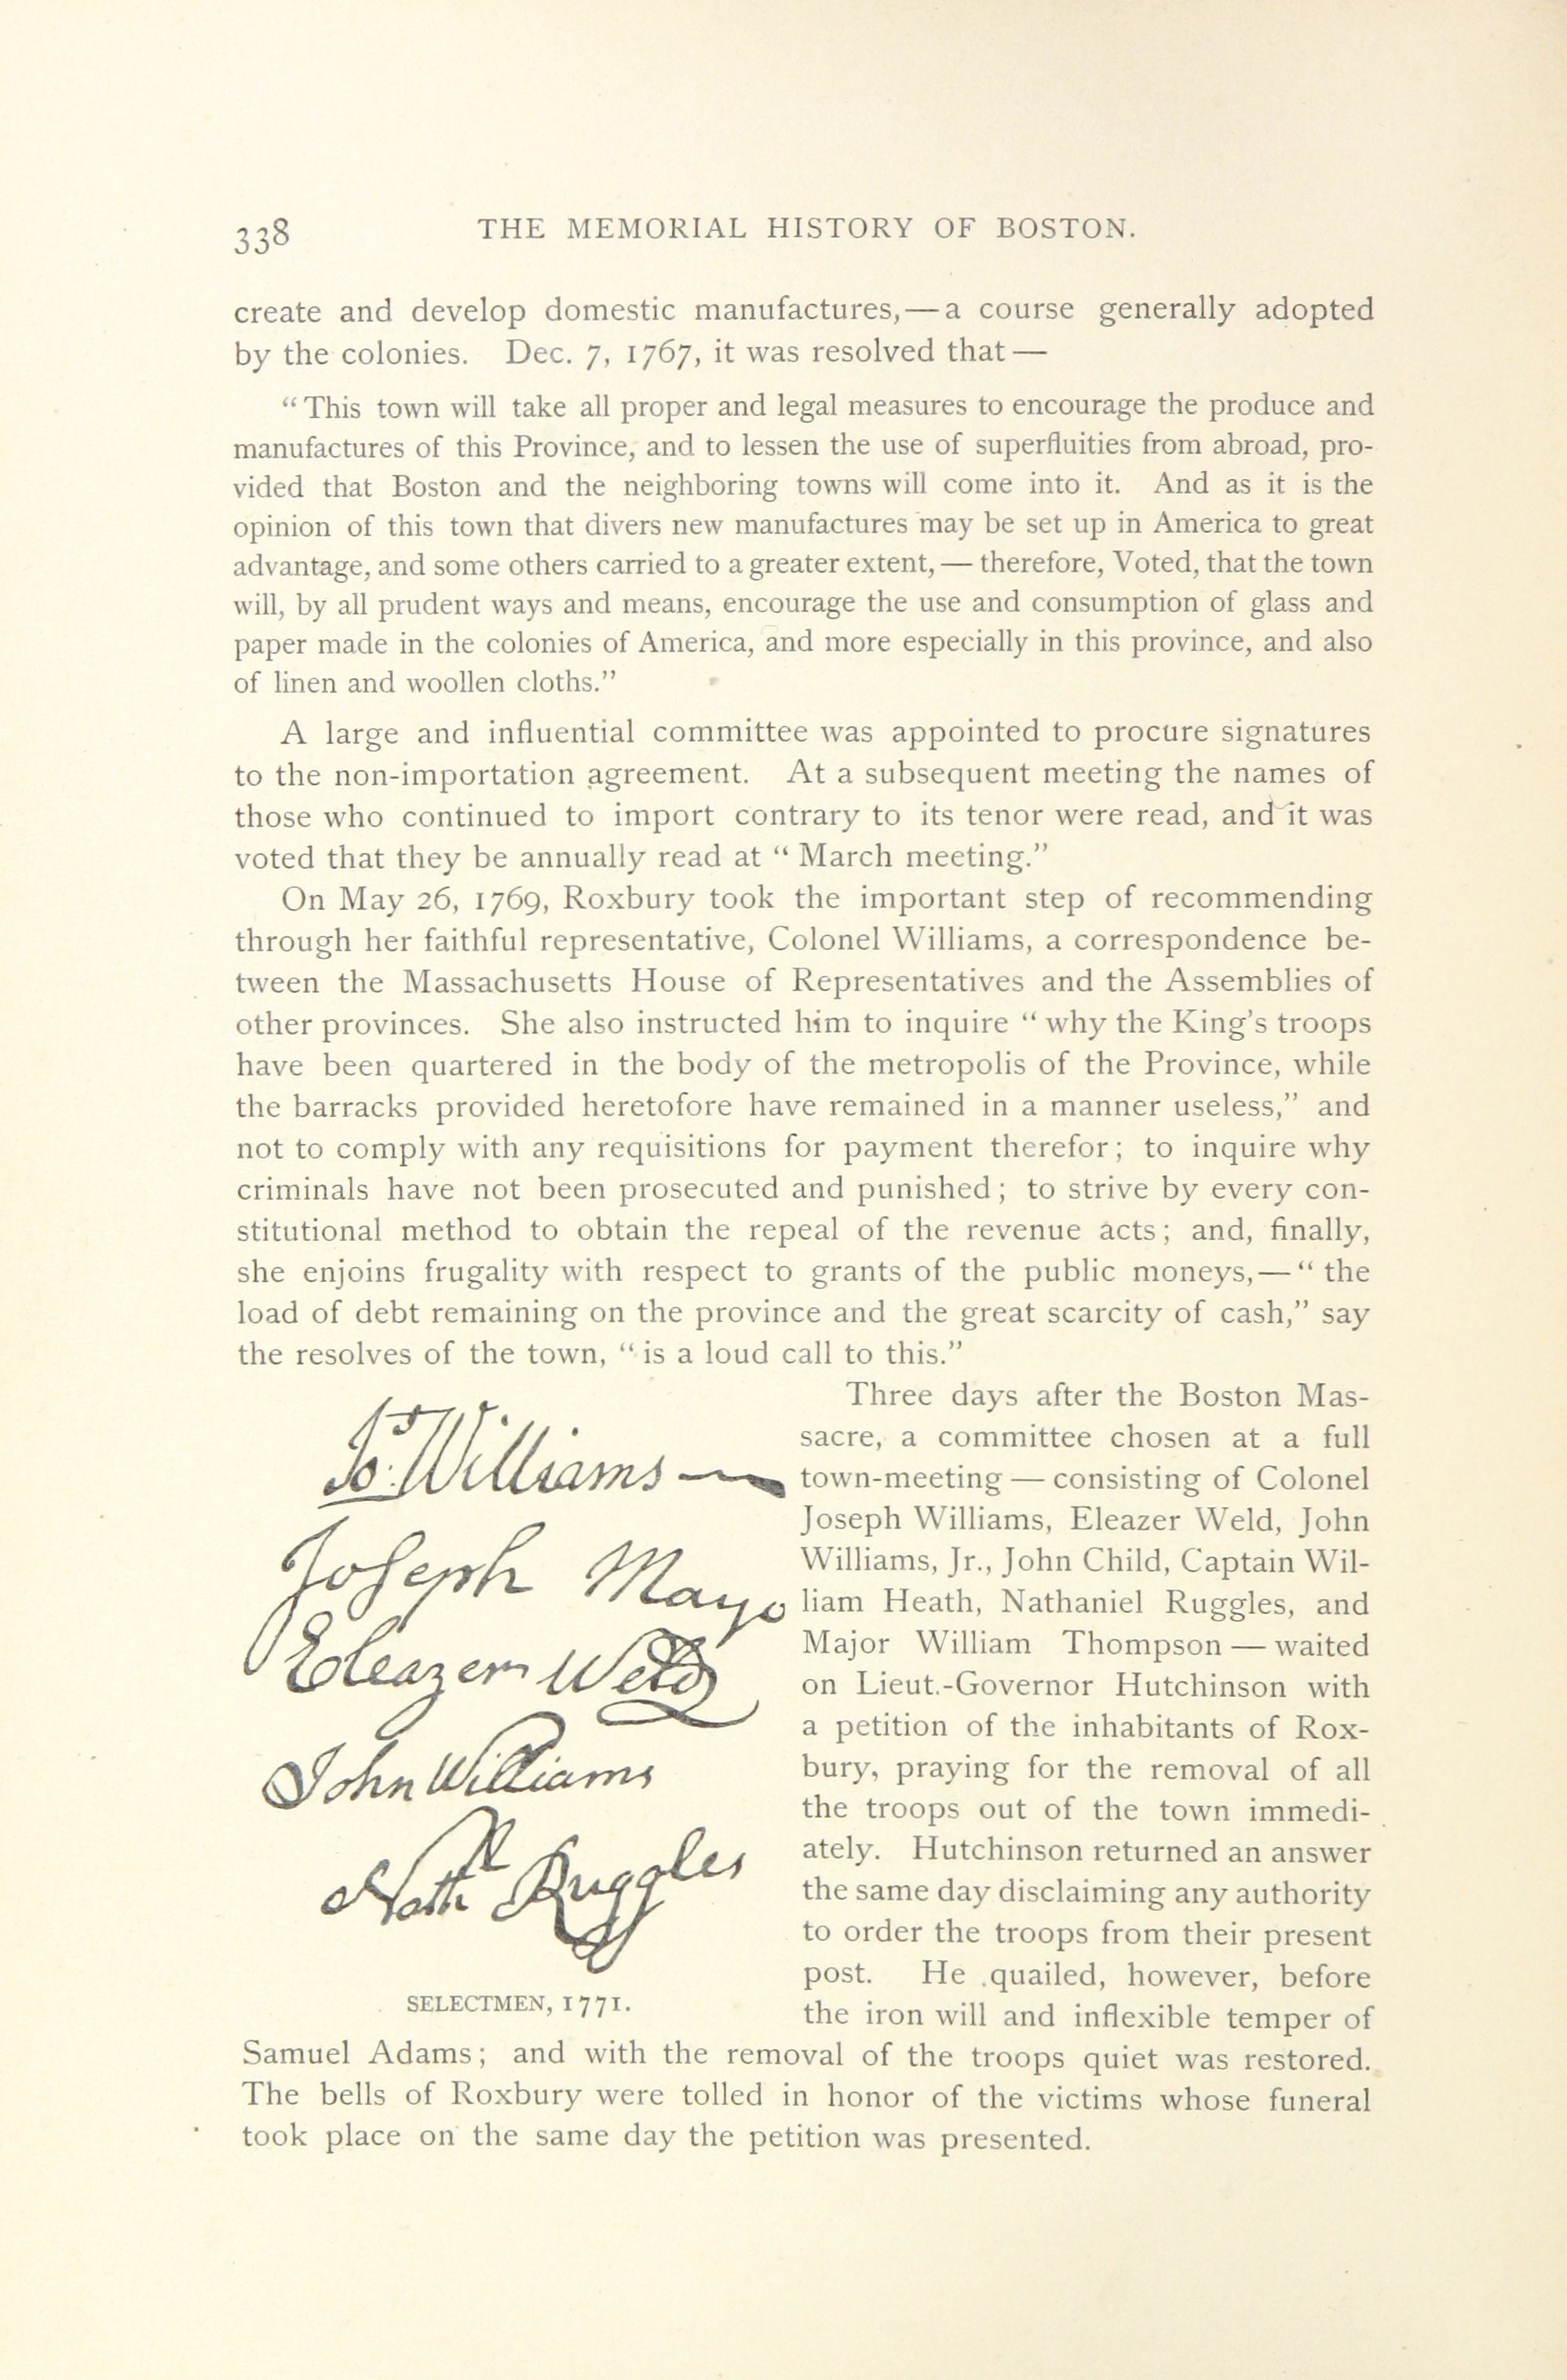 338
THE MEMORIAL HISTORY OF BOSTON.
create and develop domestic manufactures,—a course generally adopted
by the colonies. Dec. 7, 1767, it was resolved that—
“This town will take all proper and legal measures to encourage the produce and
manufactures of this Province, and to lessen the use of superfluities from abroad, pro-
vided that Boston and the neighboring towns will come into it. And as it is the
opinion of this town that divers new manufactures may be set up in America to great
advantage, and some others carried to a greater extent,—therefore, Voted, that the town
will, by all prudent ways and means, encourage the use and consumption of glass and
paper made in the colonies of America, and more especially in this province, and also
of linen and woollen cloths.”
A large and influential committee was appointed to procure signatures
to the non-importation agreement. At a subsequent meeting the names of
those who continued to import contrary to its tenor were read, and it was
voted that they be annually read at “March meeting.”
On May 26, 1769, Roxbury took the important step of recommending
through her faithful representative, Colonel Williams, a correspondence be-
tween the Massachusetts House of Representatives and the Assemblies of
other provinces. She also instructed him to inquire “why the King's troops
have been quartered in the body of the metropolis of the Province, while
the barracks provided heretofore have remained in a manner useless,” and
not to comply with any requisitions for payment therefor; to inquire why
criminals have not been prosecuted and punished; to strive by every con-
stitutional method to obtain the repeal of the revenue acts; and, finally,
she enjoins frugality with respect to grants of the public moneys,—“the
load of debt remaining on the province and the great scarcity of cash,” say
the resolves of the town, “is a loud call to this.”
Jos: Williams
Joseph Mayo
Eleazer Weld
John Williams
Nathll Ruggles
SELECTMEN, 1771.
Three days after the Boston Mas-
sacre, a committee chosen at a full
town-meeting—consisting of Colonel
Joseph Williams, Eleazer Weld, John
Williams, Jr., John Child, Captain Wil-
liam Heath, Nathaniel Ruggles, and
Major William Thompson—waited
on Lieut.-Governor Hutchinson with
a petition of the inhabitants of Rox-
bury, praying for the removal of all
the troops out of the town immedi-
ately. Hutchinson returned an answer
the same day disclaiming any authority
to order the troops from their present
post. He quailed, however, before
the iron will and inflexible temper of
Samuel Adams; and with the removal of the troops quiet was restored.
The bells of Roxbury were tolled in honor of the victims whose funeral
took place on the same day the petition was presented.